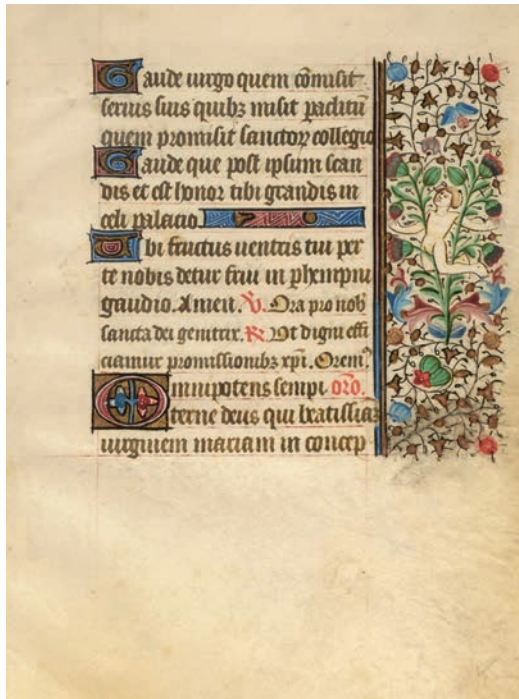 Gaude uirgo quem cōmisit
seruis suis quibꝫ misit paclitū
quem promisit sanctoꝝ collegio
Gaude que post ipsum scan
dis et est honor tibi grandis in
celi palacio
Ubi fructus uentris tui per
te nobis detur frui in phempni
gaudio. Amen. V̇. Ora pro nob
sancta dei genitrix. R̷ Ut digni effi
ciamur promissionibꝫ xp̄i. Orem⁹
Omnipotens sempi oro.
terne deus qui beatissiaꝫ
uirginem mariam in concep